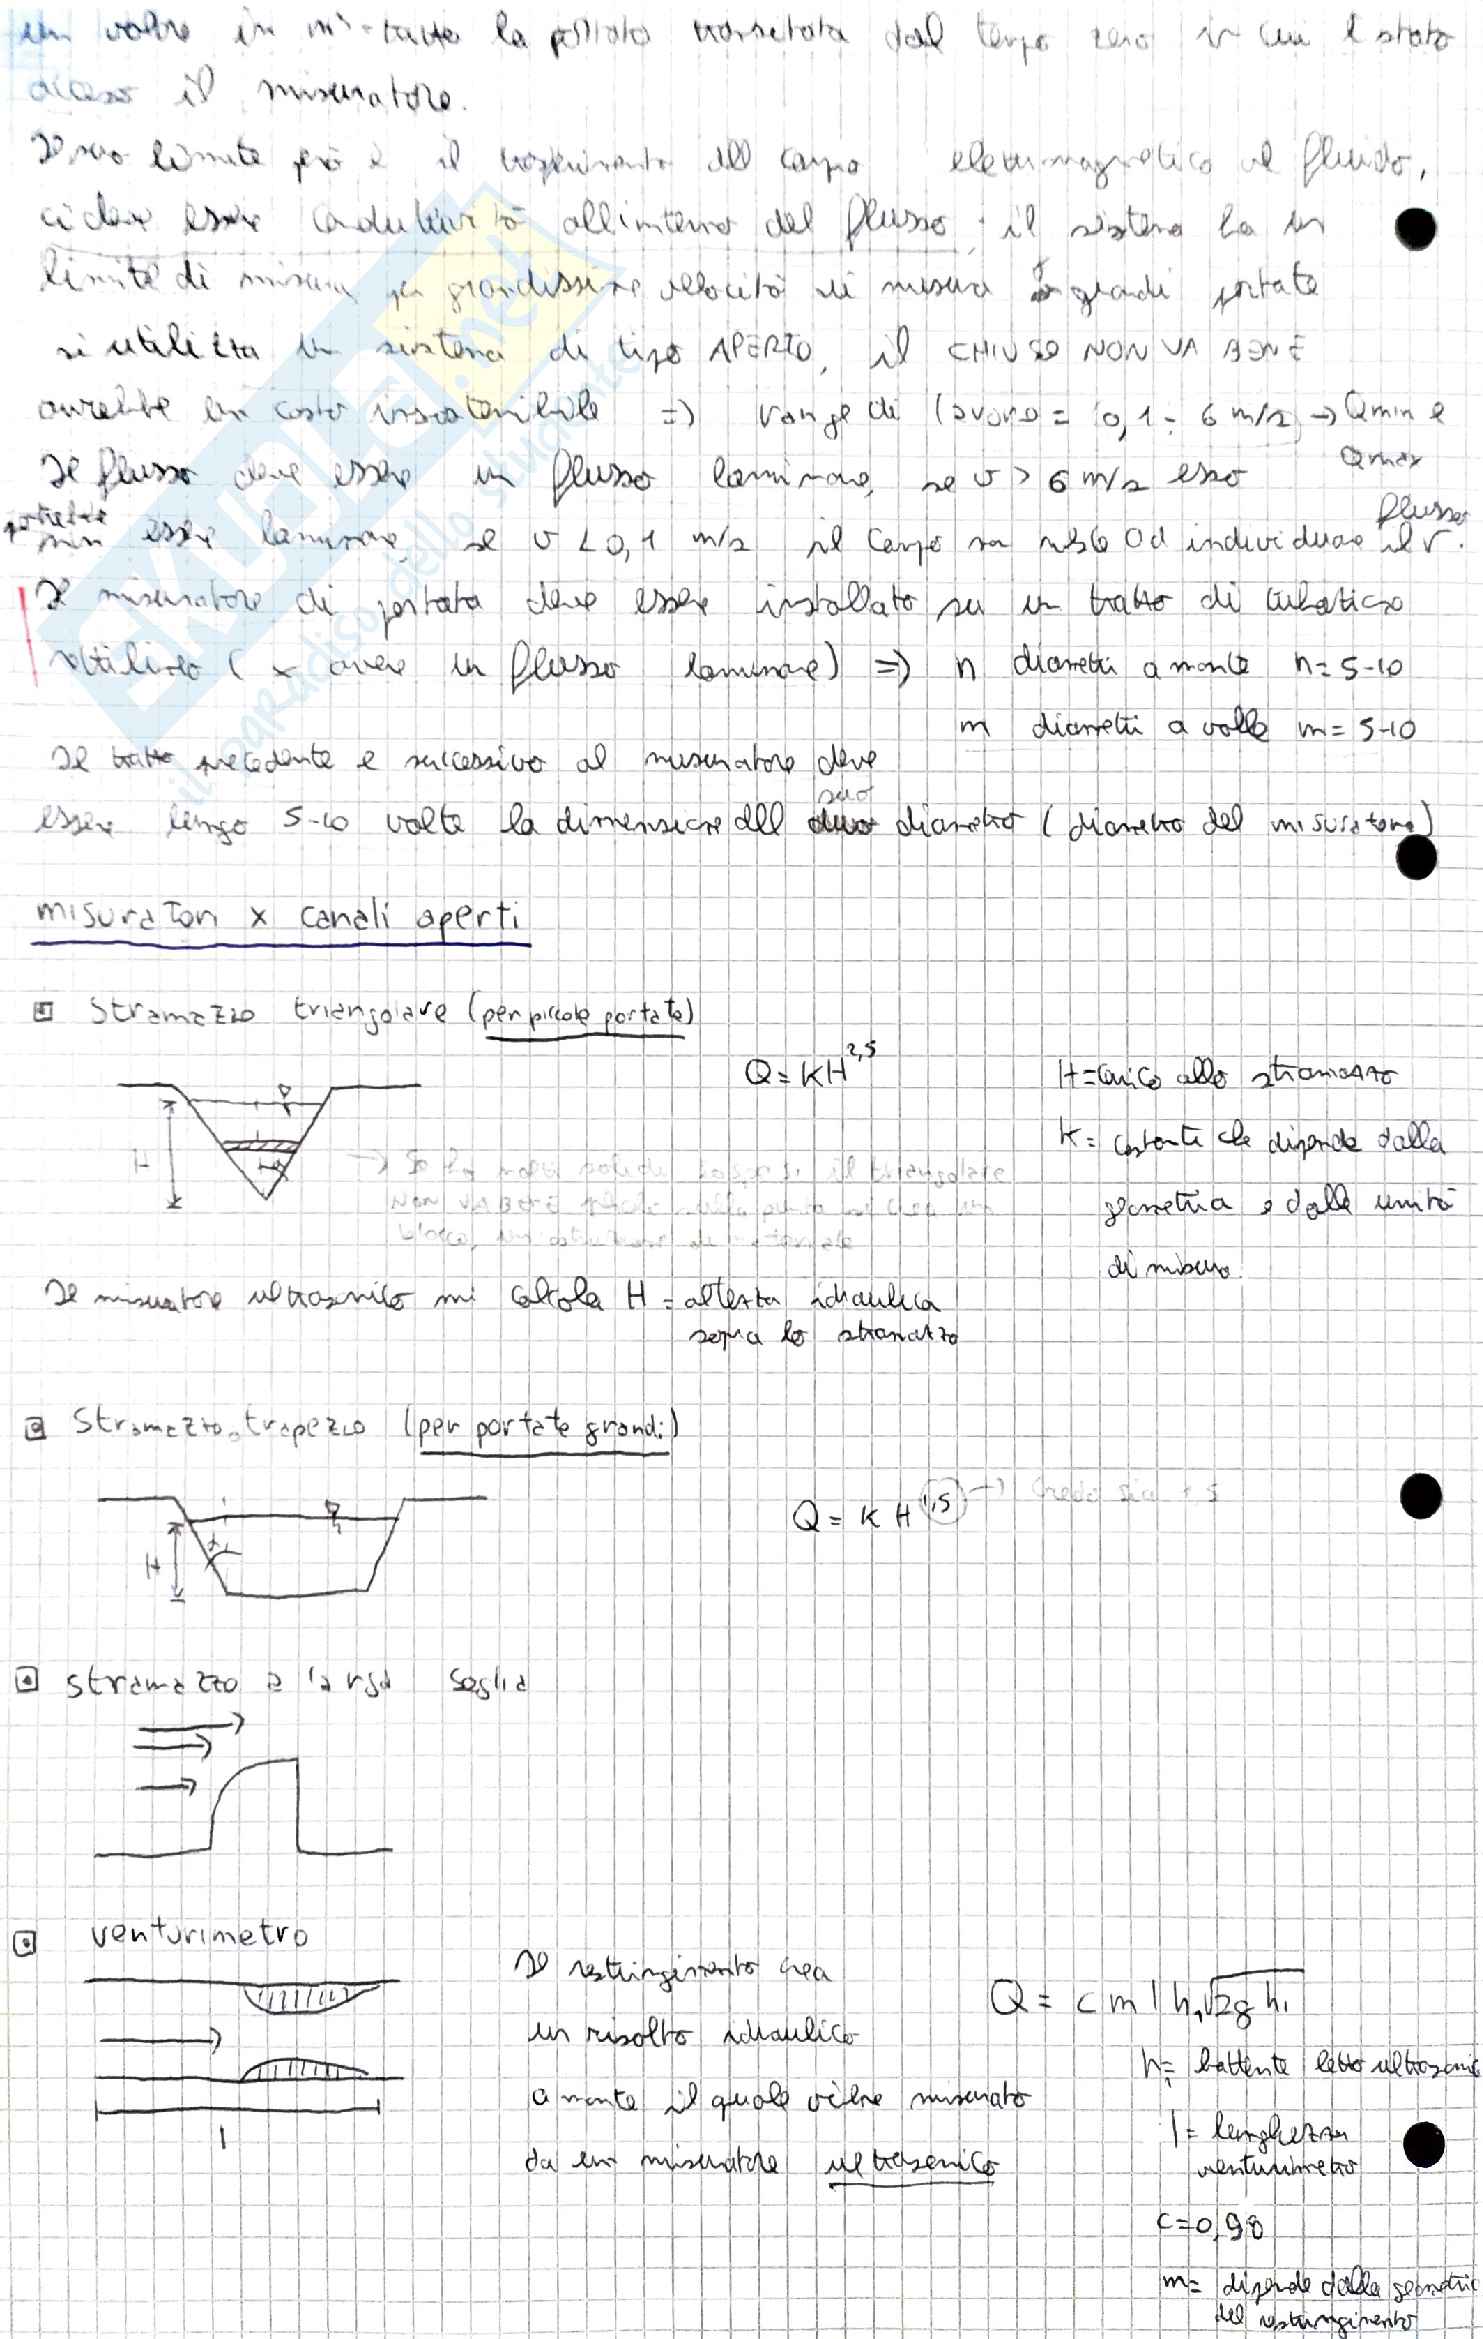 un valore in m³ = tutta la portata transitata dal tempo zero in cui è stato
acceso il misuratore.
Il suo limite però è il trasferimento del campo elettromagnetico al fluido,
ci deve essere conduttività all'interno del flusso; il sistema ha un
limite di misura per grandissime velocità di misura grandi portate
si utilizza un sistema di tipo APERTO, il CHIUSO NON VA BENE
avrebbe un costo insostenibile => range di lavoro = 0,1 ÷ 6 m/s → Qmin e
Qmax
Il flusso deve essere un flusso laminare, se v > 6 m/s esso
potrebbe non essere laminare, se v < 0,1 m/s il campo ad individuare il v.
flusso
Il misuratore di portata deve essere installato su un tratto di tubatura
rettilineo (x avere un flusso laminare) => n diametri a monte n = 5-10
m diametri a valle m = 5-10
Il tratto precedente e successivo al misuratore deve
essere lungo 5-10 volte la dimensione del suo diametro (diametro del misuratore)
misuratori x canali aperti
Stramazzo triangolare (per piccole portate)
Q = KH^2,5
H = carico allo stramazzo
K = costante che dipende dalla
geometria e dalle unità
di misura.
H
← Se ho molti solidi il triangolare
NON VA BENE perché nella punta
blocco, un di materiale
Il misuratore ultrasonico mi calcola H = altezza idraulica
sopra lo stramazzo
Stramazzo trapezio (per portate grandi)
Q = K H^1,5 → Credo sia 1,5
H
α
stramazzo a larga soglia
venturimetro
Il restringimento crea
un risalto idraulico
a monte il quale viene misurato
da un misuratore ultrasonico
l
Q = c m l h₁ √2g h₁
h₁ = battente letto ultrasonic
l = lunghezza
venturimetro
c = 0,98
m = dipende dalla geometria
del restringimento
SKUOLA.net
il paradiso dello studente